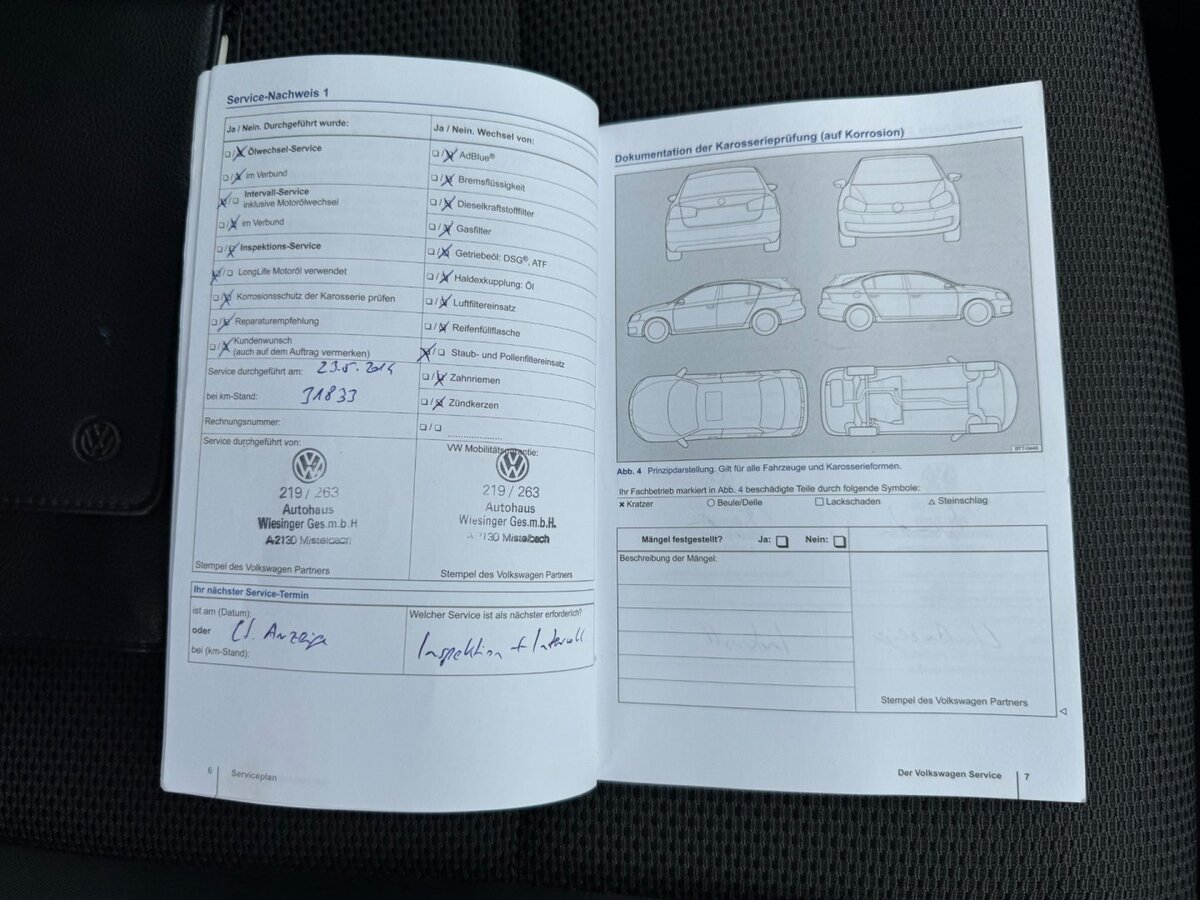 Service-Nachweis 1
Ja / Nein. Durchgeführt wurde:
Ölwechsel-Service
im Verbund
Intervall-Service
inklusive Motorölwechsel
im Verbund
Inspektions-Service
LongLife Motoröl verwendet
Korrosionsschutz der Karosserie prüfen
Reparaturempfehlung
Kundenwunsch
(auch auf dem Auftrag vermerken)
Service durchgeführt am: 23.5.2014
bei km-Stand: 31833
Rechnungsnummer:
Service durchgeführt von:
219 / 263
Autohaus
Wiesinger Ges.m.b.H
A2130 Mistelbach
Stempel des Volkswagen Partners
Ja / Nein. Wechsel von:
AdBlue®
Bremsflüssigkeit
Dieselkraftstofffilter
Gasfilter
Getriebeöl: DSG®, ATF
Haldexkupplung: Öl
Luftfiltereinsatz
Reifenfüllflasche
Staub- und Pollenfiltereinsatz
Zahnriemen
Zündkerzen
VW Mobilitätsgarantie:
219 / 263
Autohaus
Wiesinger Ges.m.b.H.
A2130 Mistelbach
Stempel des Volkswagen Partners
Ihr nächster Service-Termin
ist am (Datum):
oder lt. Anzeige
bei (km-Stand):
Welcher Service ist als nächster erforderlich?
Inspektion + Intervall
6 Serviceplan
Dokumentation der Karosserieprüfung (auf Korrosion)
Abb. 4 Prinzipdarstellung. Gilt für alle Fahrzeuge und Karosserieformen.
Ihr Fachbetrieb markiert in Abb. 4 beschädigte Teile durch folgende Symbole:
Kratzer Beule/Delle Lackschaden Steinschlag
Mängel festgestellt? Ja: Nein:
Beschreibung der Mängel:
Stempel des Volkswagen Partners
Der Volkswagen Service 7